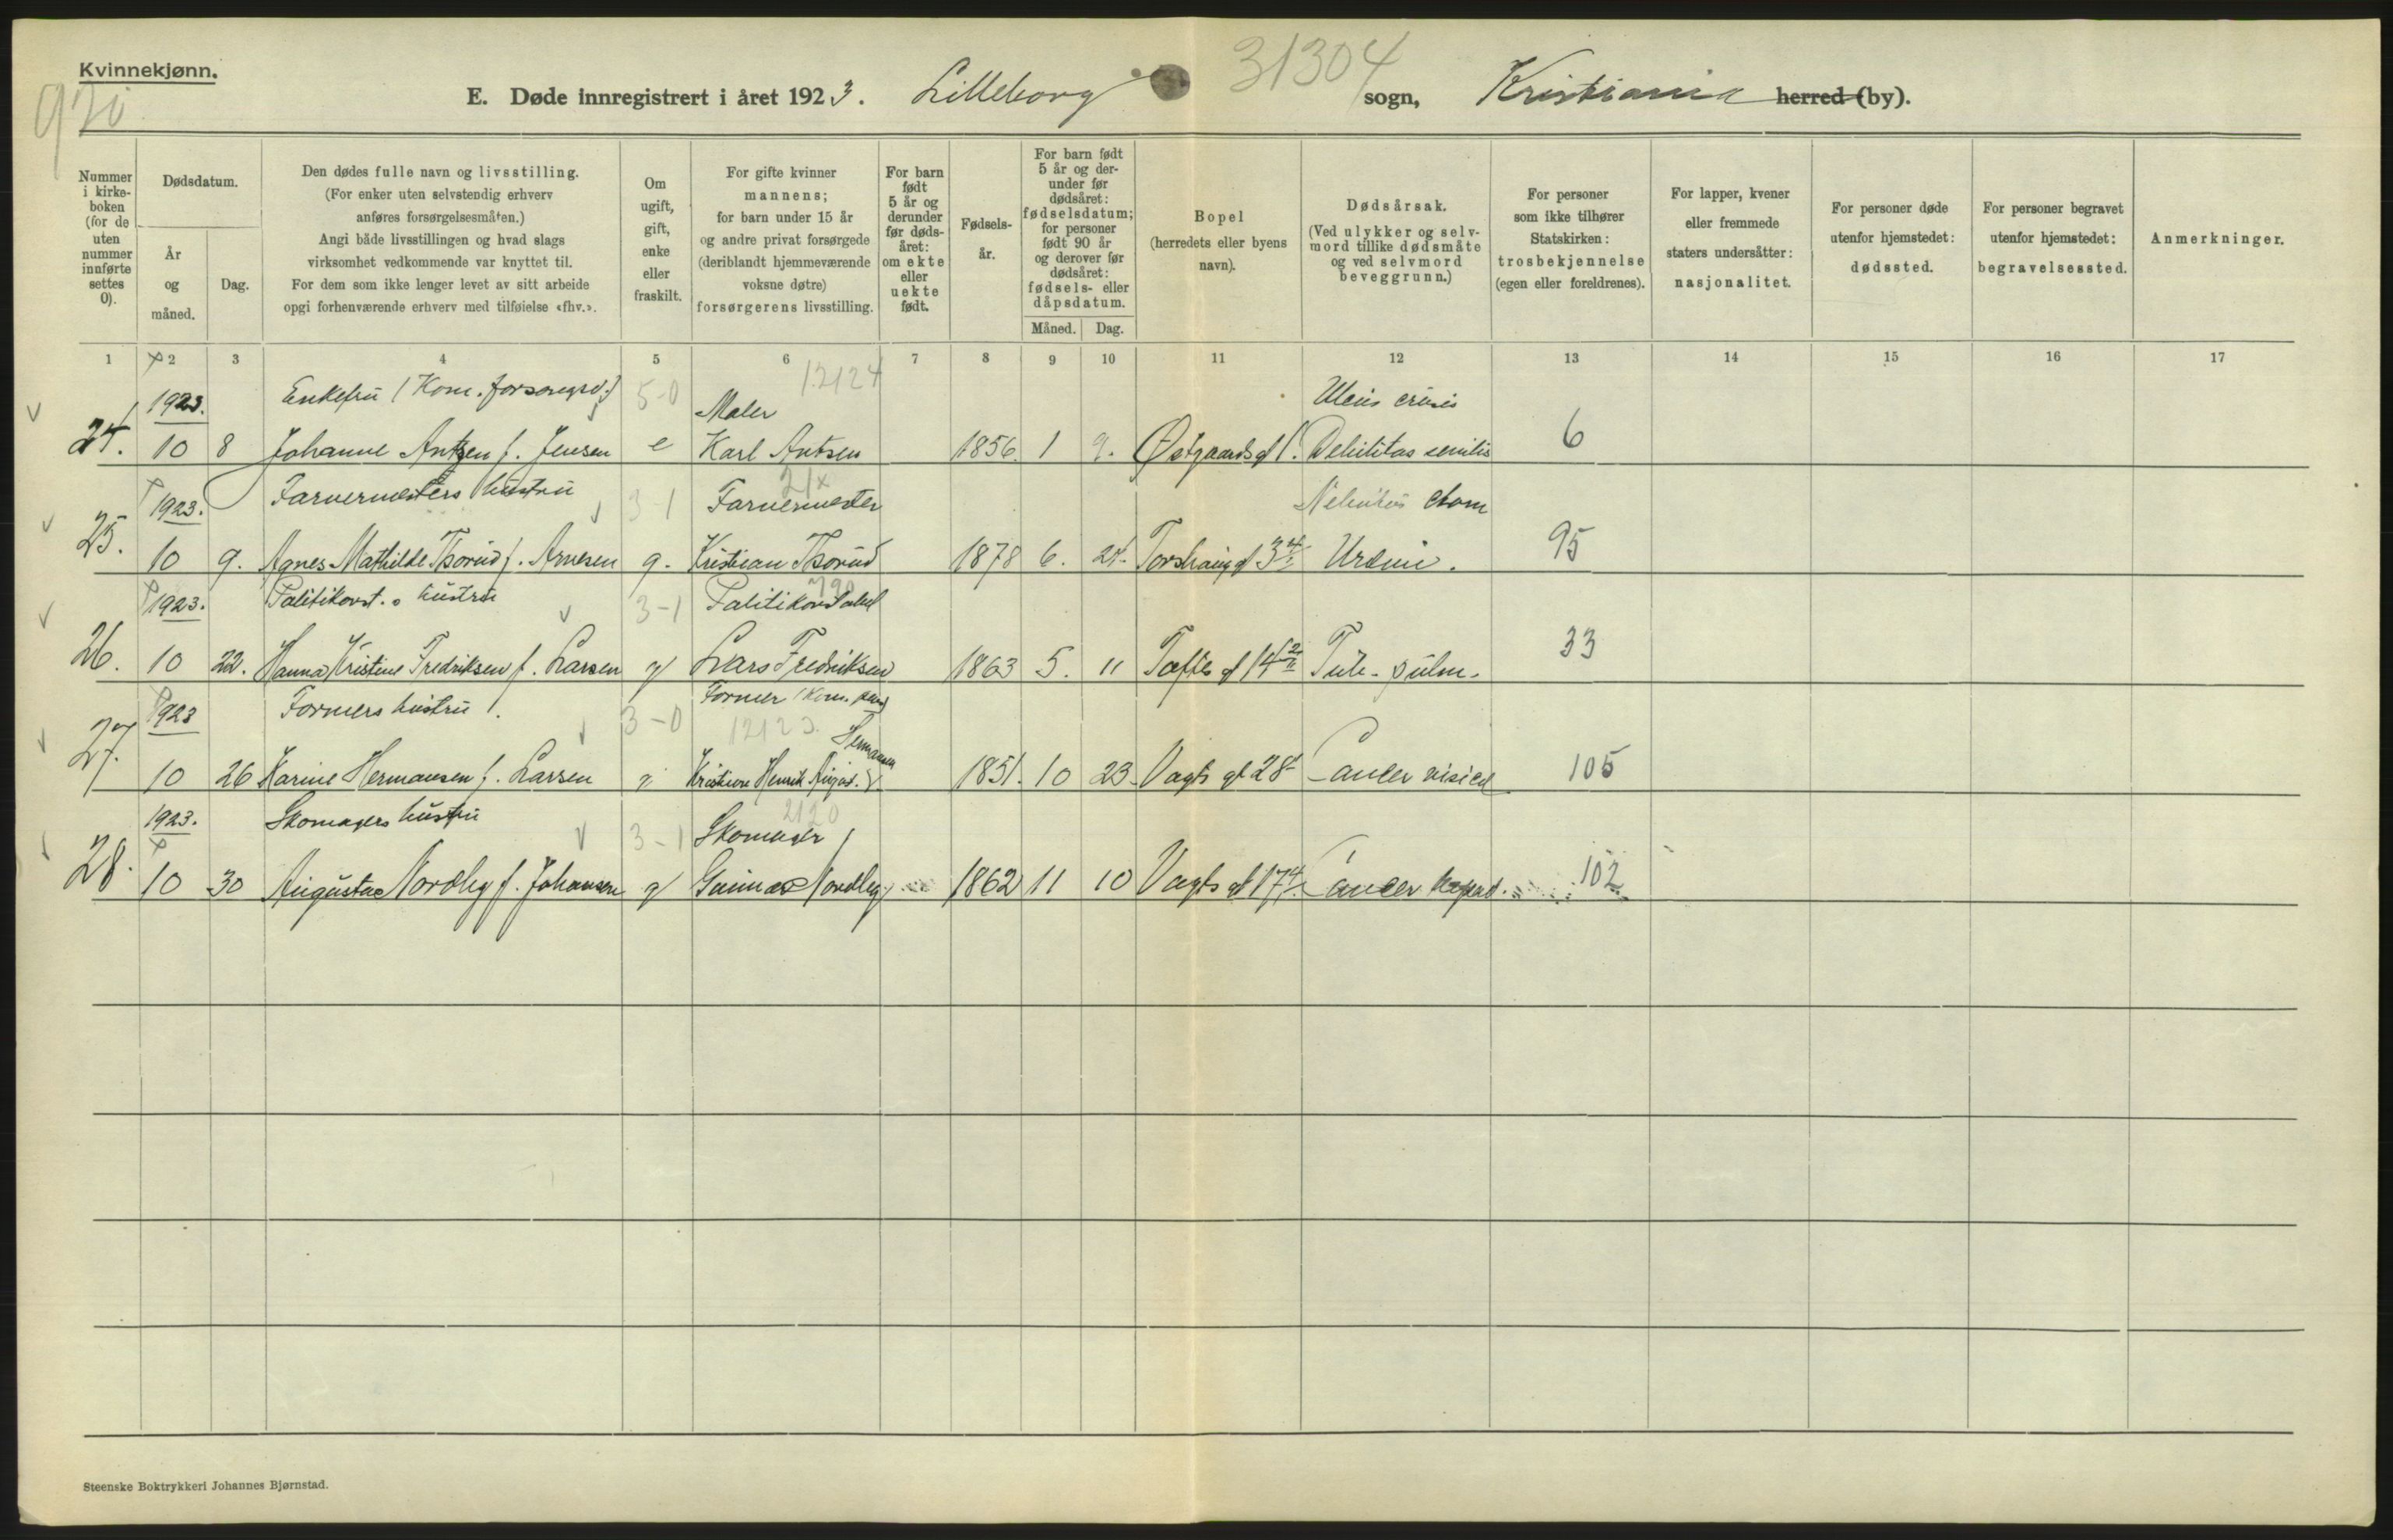 Kvinnekjønn.
920
E. Døde innregistrert i året 1923. Lilleborg sogn, Kristiania herred (by).
31304
Nummer i kirke-boken (for de uten nummer innførte settes 0).
Dødsdatum.
År og måned.
Dag.
Den dødes fulle navn og livsstilling.
(For enker uten selvstendig erhverv
anføres forsørgelsesmåten.)
Angi både livsstillingen og hvad slags
virksomhet vedkommende var knyttet til.
For dem som ikke lenger levet av sitt arbeide
opgi forhenværende erhverv med tilføielse «fhv.».
Om ugift, gift, enke eller fraskilt.
For gifte kvinner
mannens;
for barn under 15 år
og andre privat forsørgede
(deriblandt hjemmeværende
voksne døtre)
forsørgerens livsstilling.
For barn født 5 år og derunder før døds-året: om ekte eller uekte født.
Fødsels-år.
For barn født 5 år og der-under før dødsåret: fødselsdatum; for personer født 90 år og derover før dødsåret: fødsels- eller dåpsdatum.
Måned. Dag.
Bopel
(herredets eller byens
navn).
Dødsårsak.
(Ved ulykker og selv-
mord tillike dødsmåte
og ved selvmord
beveggrunn.)
For personer
som ikke tilhører
Statskirken:
trosbekjennelse
(egen eller foreldrenes).
For lapper, kvener
eller fremmede
staters undersåtter:
nasjonalitet.
For personer døde
utenfor hjemstedet:
dødssted.
For personer begravet
utenfor hjemstedet:
begravelsessted.
Anmerkninger.
1 2 3 4 5 6 7 8 9 10 11 12 13 14 15 16 17
1923. Enkefru (Kom. forsørget) 5-0 Maler 12124 Ulcus cruris
24. 10 8 Johanne Antzen f. Jensen e Karl Antsen 1856 1 9. Østgaards gt 1. Debilitas senilis 6
1923. Farvermesters hustru 3-1 Farvermester 21x Nefritis chron
25. 10 9. Agnes Mathilde Thorud f. Arnesen g. Kristian Thorud 1878 6. 24. Torshaug gt 3 Uræmi. 95
1923. Politikonst.s hustru 3-1 Politikonstabel 790
26. 10 22. Hanna Kristine Fredriksen f. Larsen g Lars Fredriksen 1863 5. 11 Toftes gt 14 Tub. pulm. 33
1923 Formers hustru 3-0 Former (Kom. 12123.
27. 10 26 Karine Hermansen f. Larsen g Kristian Henrik August Hermansen 1851. 10 23 Vogts gt 28 Cancer 105
1923. Skomagers hustru 3-1 Skomager 2120
28. 10 30 Augusta Nordby f. Johansen g Gunnar Nordby 1862 11 10 Vogts gt 17 Cancer hepat. 102
Steenske Boktrykkeri Johannes Bjørnstad.